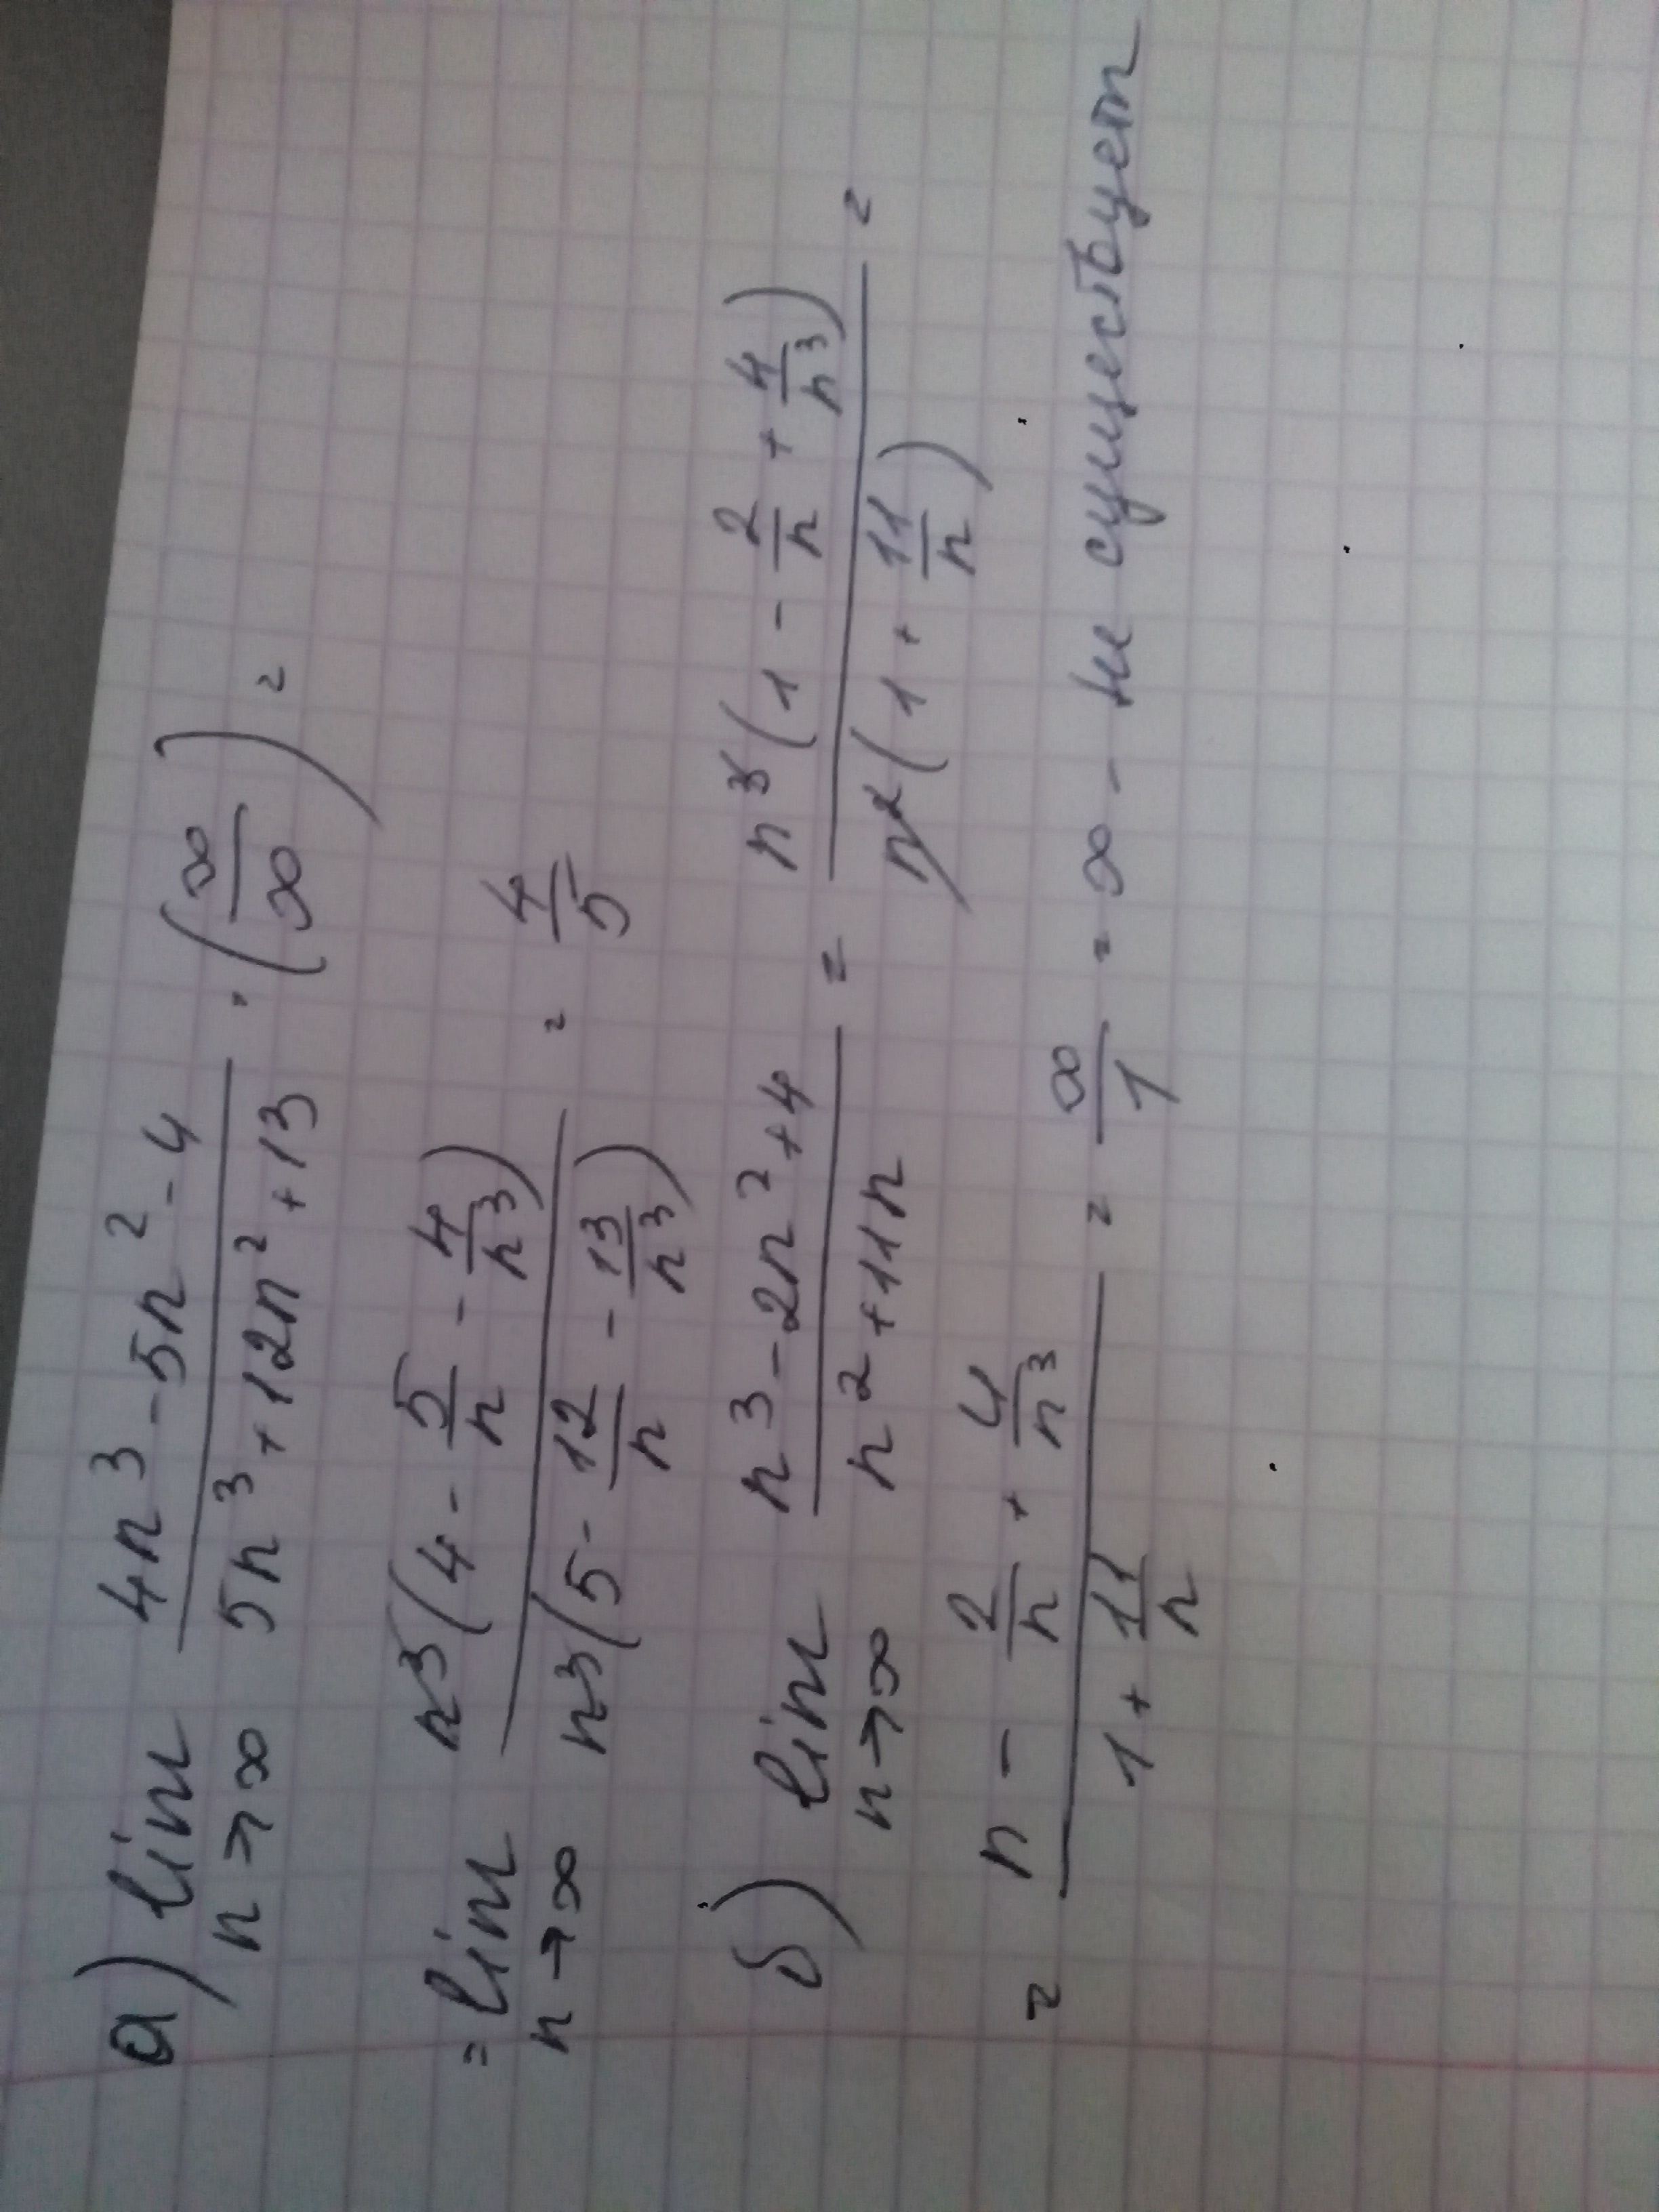 а) lim n→∞ (4n³ - 5n² - 4)/(5n³ + 12n² + 13) = (∞/∞) =
= lim n→∞ n³(4 - 5/n - 4/n³)/n³(5 - 12/n - 13/n³) = 4/5
б) lim n→∞ (n³ - 2n² + 4)/(n² + 11n) = n³(1 - 2/n + 4/n³)/n²(1 + 11/n) =
= (n - 2/n + 4/n³)/(1 + 11/n) = ∞/1 = ∞ - не существует